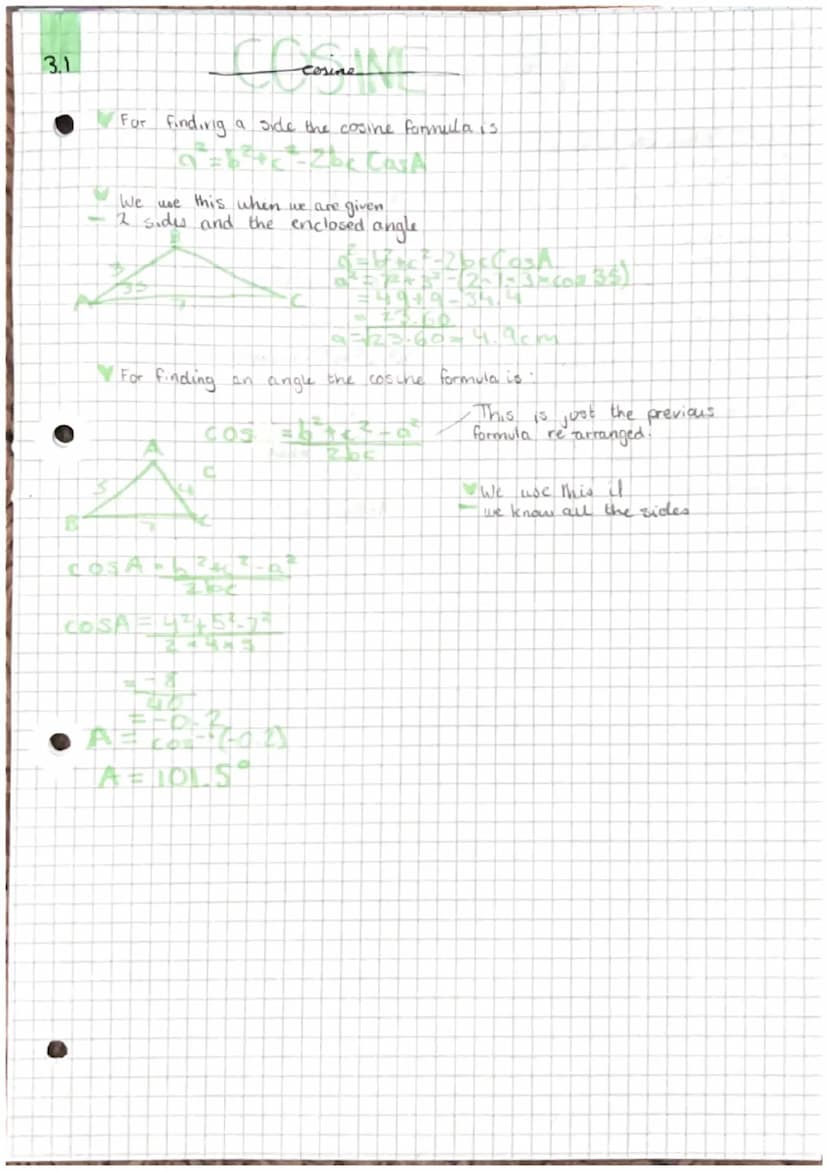 3.1
COSINE
cosine
For finding a side the cosine formula is
a²=b²+c²-2bc CosA
We use this when we are given
2 sides and the enclosed angle
B
3
35
A
7
C
a²=b²+c²-2bc CosA
a²=7²+3²-(2×7×3×cos 35)
=49+9-34.4
= 23.60
a=√23.60= 4.9cm
For finding an angle the cosine formula is:
cos = b²+c²-a²
2bc
This is just the previous
formula re arranged.
A
C
5
4
B
7
C
We use this if
we know all the sides
cosA = b²+c²-a²
2bc
cosA = 4²+5²-7²
2×4×5
= -8
40
= -0.2
A = cos⁻¹(-0.2)
A = 101.5°